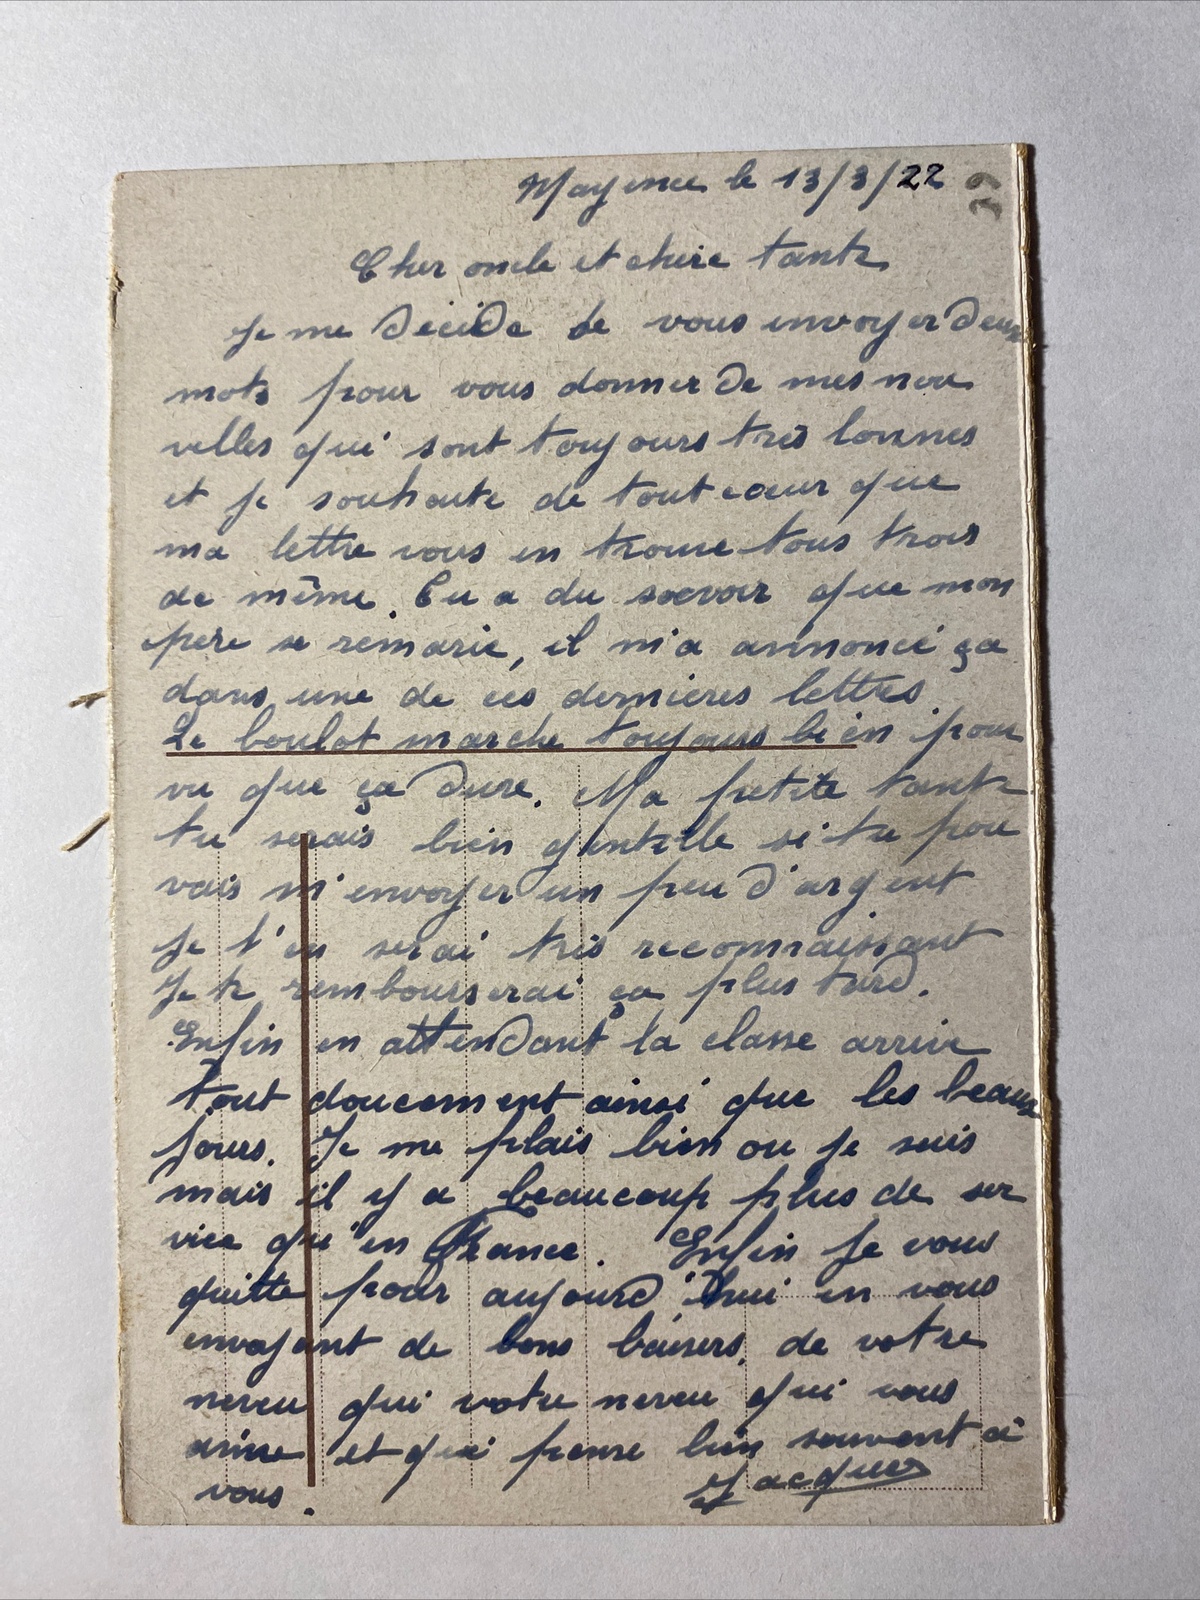 Mayence le 13/3/22
39
Cher oncle et chère tante
Je me décide de vous envoyer deux
mots pour vous donner de mes nou
velles qui sont toujours très bonnes
et je souhaite de tout cœur que
ma lettre vous en trouve tous trois
de même. Tu a du savoir que mon
père se remarie, il m'a annoncé ça
dans une de ces dernières lettres
Le boulot marche toujours bien pour
vu que ça dure. Ma petite tante
tu serais bien gentille si tu pou
vais m'envoyer un peu d'argent
je t'en serai très reconnaissant
Je te rembourserai ça plus tard.
Enfin en attendant la classe arrive
tout doucement ainsi que les beaux
jours. Je me plais bien ou je suis
mais il y a beaucoup plus de ser
vice qu'en France. Enfin je vous
quitte pour aujourd'hui en vous
envoyant de bons baisers de votre
neveu qui votre neveu qui vous
aime et qui pense bien souvent à
vous. Jacques